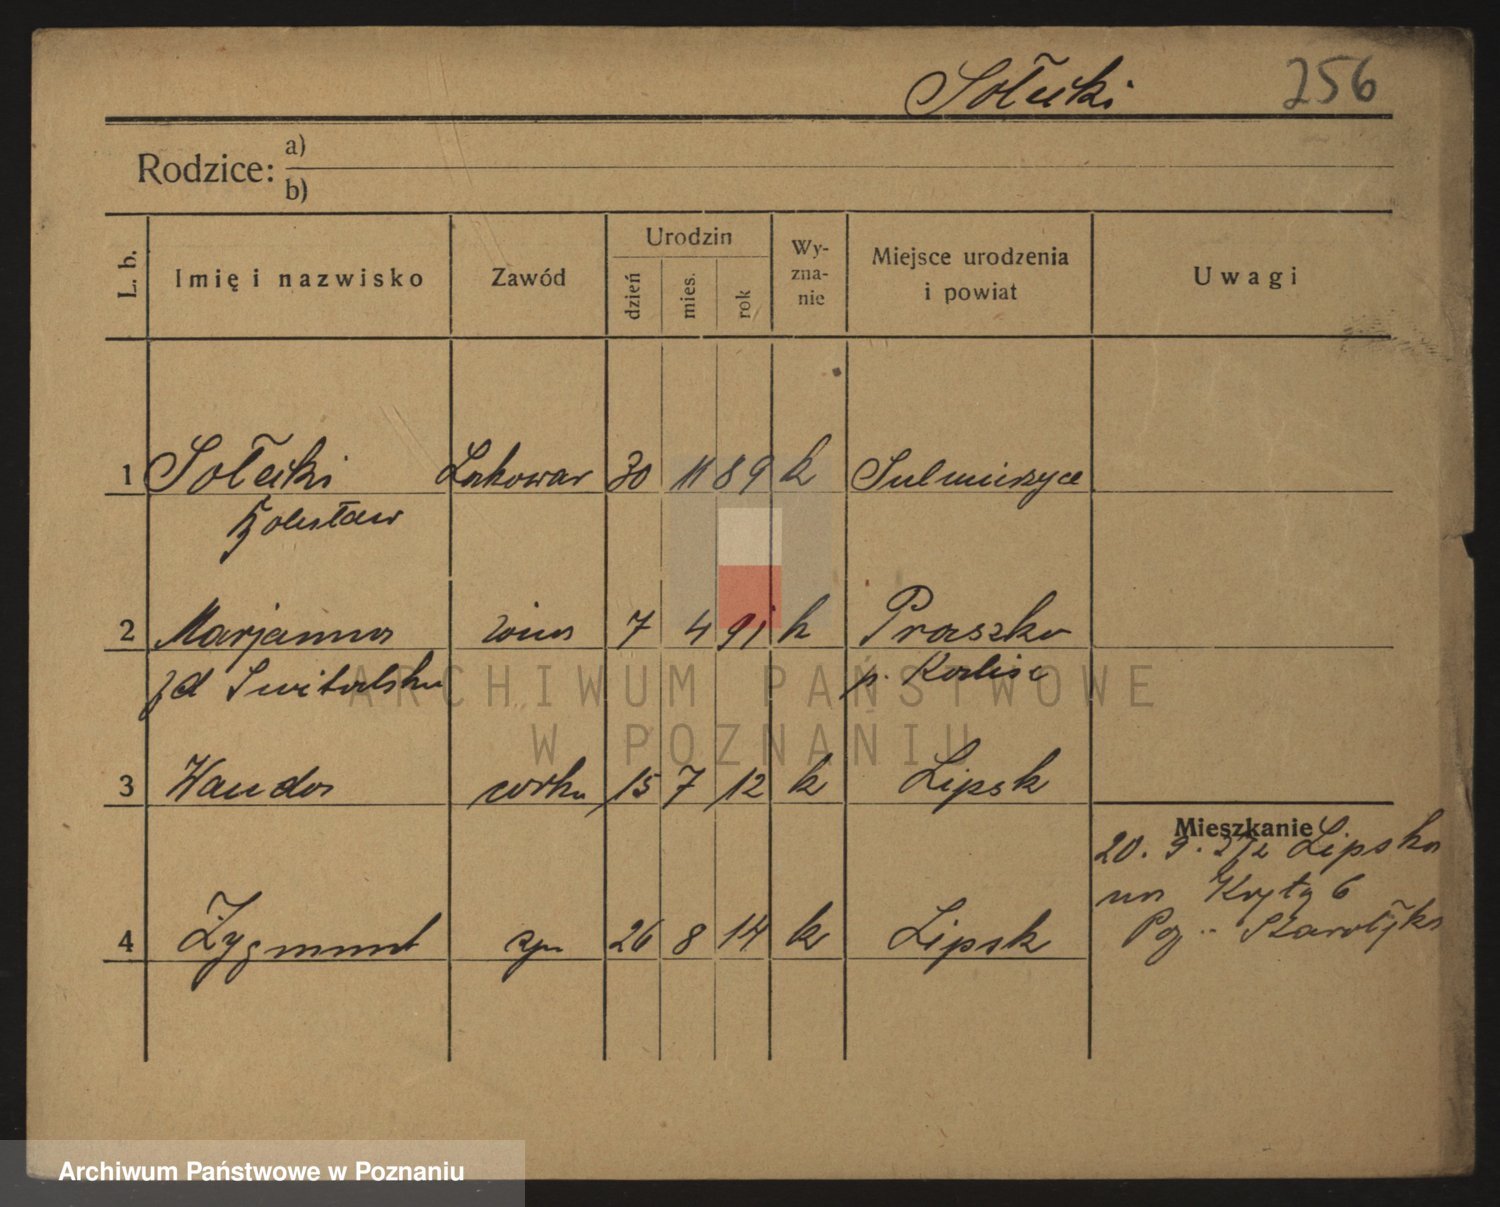 Sołecki 256
Rodzice: a)
b)
L. b.
Imię i nazwisko
Zawód
Urodzin
dzień
mies.
rok
Wy-
zna-
nie
Miejsce urodzenia
i powiat
Uwagi
1 Sołecki Lakowar 30 11 89 k Sulmierzyce
Bolesław
2 Marjanna żona 7 4 91 k Praszka
zd Switalska p. Kalisz
3 Wanda córka 15 7 12 k Lipsk
Mieszkanie
20. 9. Lipska
na 6
4 Zygmunt syn 26 8 14 k Lipsk
Poz. Starołęka
ARCHIWUM PAŃSTWOWE
W POZNANIU
Archiwum Państwowe w Poznaniu